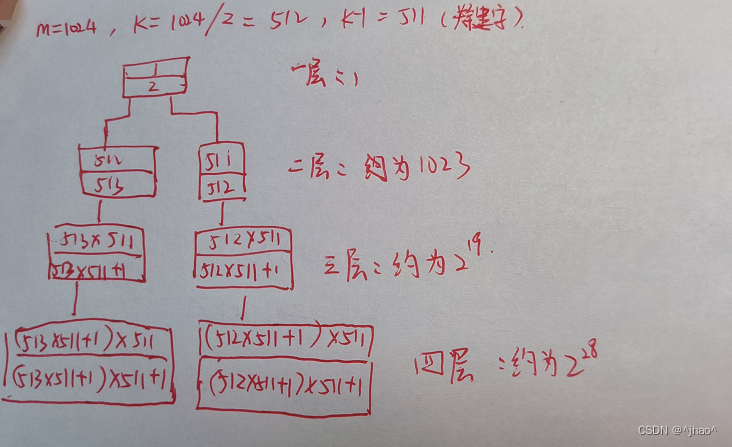 m=1024, K=1024/2=512, K-1=511(关键字)
1
2
一层：1
512
513
511
512
二层：约为1023
513×511
513×511+1
512×511
512×511+1
三层：约为2^19.
(513×511+1)×511
(513×511+1)×511+1
(512×511+1)×511
(512×511+1)×511+1
四层：约为2^28
CSDN @^jhao^